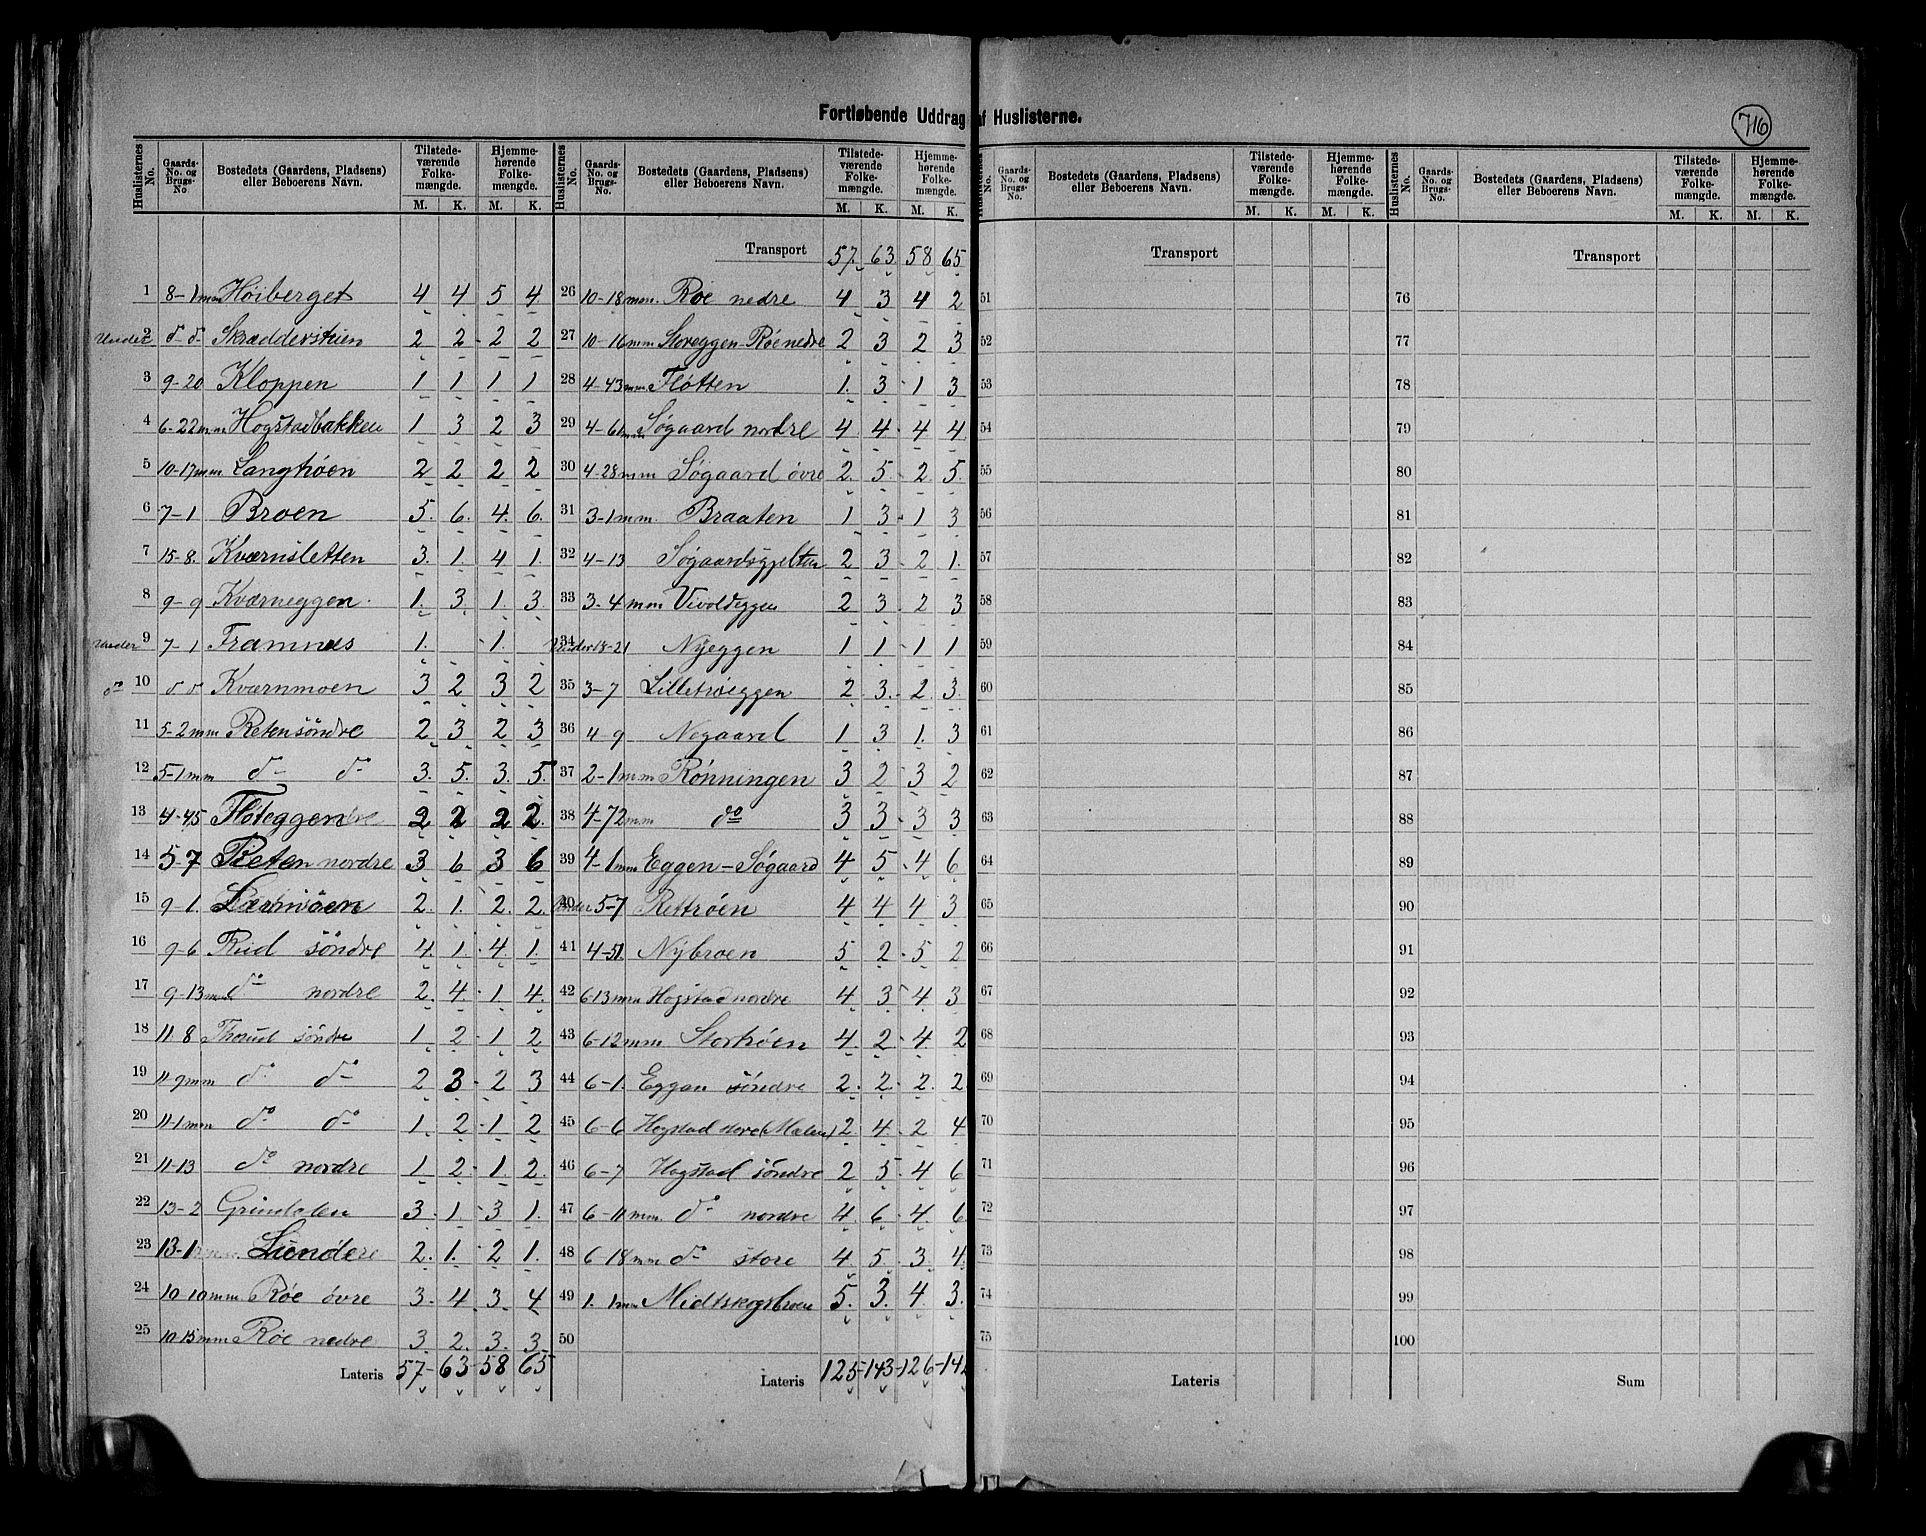 Fortløbende Uddrag af Huslisterne.
716
Huslisternes No. | Gaards-No. og Brugs-No | Bostedets (Gaardens, Pladsens) eller Beboerens Navn. | Tilstedeværende Folkemængde. M. K. | Hjemmehørende Folkemængde. M. K.
1 8-1 mm Høiberget 4 4 5 4
Under 2 do do Skrædderstuen 2 2 2 2
3 9-20 Kloppen 1 1 1 1
4 6-22 mm Hogstadbakken 1 3 2 3
5 10-17 mm Langtrøen 2 2 2 2
6 7-1 Broen 5. 6. 4. 6.
7 15-8. Kværnsletten 3. 1. 4 1.
8 9-9 Kværneggen. 1. 3. 1. 3.
Under 9 7-1 Framnæs 1. 1.
do 10 do do Kværnmoen 3 2 3 2
11 5-2 mm Reten søndre 2 3 2 3
12 5-1 mm do do 3. 5. 3. 5.
13 4-45 Fløteggen 2 2 2 2.
14 5-7 Reten nordre 3 6 3 6
15 9-1. 2. 1. 2. 2.
16 9-6 Rud søndre 4. 1. 4. 1.
17 9-13 mm do nordre 2. 4. 1 4.
18 11-8 Thorud søndre 1. 2 1 2
19 11-9 mm do do 2 3 2 3
20 11-1 mm do do 1. 2 1 2
21 11-13 do nordre 1. 2 1. 2.
22 13-2 Grindalen 3. 1. 3 1.
23 13-1 2. 1. 2 1.
24 10-10 mm. Røe øvre 3. 4. 3. 4
25 10-15 mm Røe nedre 3. 2. 3. 3.
Lateris 57 63 58 65
Huslisternes No. | Gaards-No. og Brugs-No | Bostedets (Gaardens, Pladsens) eller Beboerens Navn. | Tilstedeværende Folkemængde. M. K. | Hjemmehørende Folkemængde. M. K.
Transport 57. 63. 58 65
26 10-18 mm. Røe nedre 4 3 4 2
27 10-16 mm Storeggen-Røe nedre 2 3 2 3
28 4-43 mm. Fløtten 1. 3 1 3
29 4-61 mm Søgaard nordre 4 4 4 4.
30 4-28 mm Søgaard øvre 2. 5. 2. 5.
31 3-1 mm. Braaten 1 3 1 3
32 4-13 Søgaardsgjelten 2 3 2 1.
33 3-4 mm Vivoldeggen 2 3. 2 3
34 Under 18-21 Nyeggen 1 1 1 1
35 3-7 Lilletrøeggen 2. 3. 2. 3.
36 4-9 Nogaard 1 3 1. 3
37 2-1 mm Rønningen 3 2 3 2
38 4-72 mm do 3 3 3 3
39 4-1 mm Eggen-Søgaard 4 5 4 6
Under 40 5-7 Rettrøen 4 4 4 3
41 4-51 Nybroen 5 2 5 2
42 6-13 mm Hogstad nordre 4 3 4 3
43 6-12 mm Stortrøen 4. 2 4. 2
44 6-1. Eggan søndre 2. 2. 2. 2
45 6-6 Hogstad 2. 4. 2 4
46 6-7 Hogstad søndre 2 5 4 6
47 6-11 mm. do nordre 4. 6. 4. 6
48 6-18 mm do store 4 5. 3. 4
49 1. 1 mm Midtskogsbroen 5. 3. 4 3.
50
Lateris 125 143 126
Huslisternes No. | Gaards-No. og Brugs-No. | Bostedets (Gaardens, Pladsens) eller Beboerens Navn. | Tilstedeværende Folkemængde. M. K. | Hjemmehørende Folkemængde. M. K.
Transport
51
52
53
54
55
56
57
58
59
60
61
62
63
64
65
66
67
68
69
70
71
72
73
74
75
Lateris
Huslisternes No. | Gaards-No. og Brugs-No. | Bostedets (Gaardens, Pladsens) eller Beboerens Navn. | Tilstedeværende Folkemængde. M. K. | Hjemmehørende Folkemængde. M. K.
Transport
76
77
78
79
80
81
82
83
84
85
86
87
88
89
90
91
92
93
94
95
96
97
98
99
100
Sum